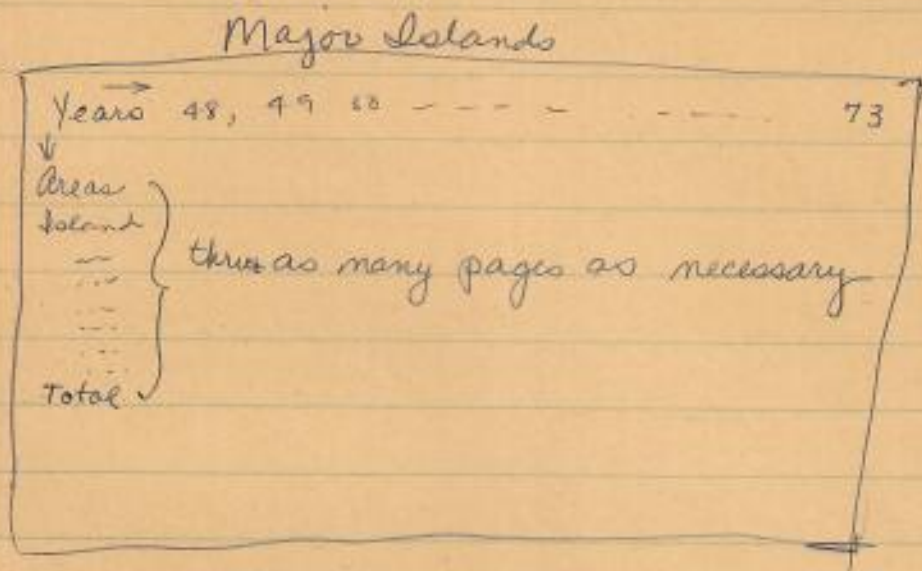 Major Islands
Years 48, 49 50 - - - - - - - - - 73
Areas
Island
thru as many pages as necessary
Total